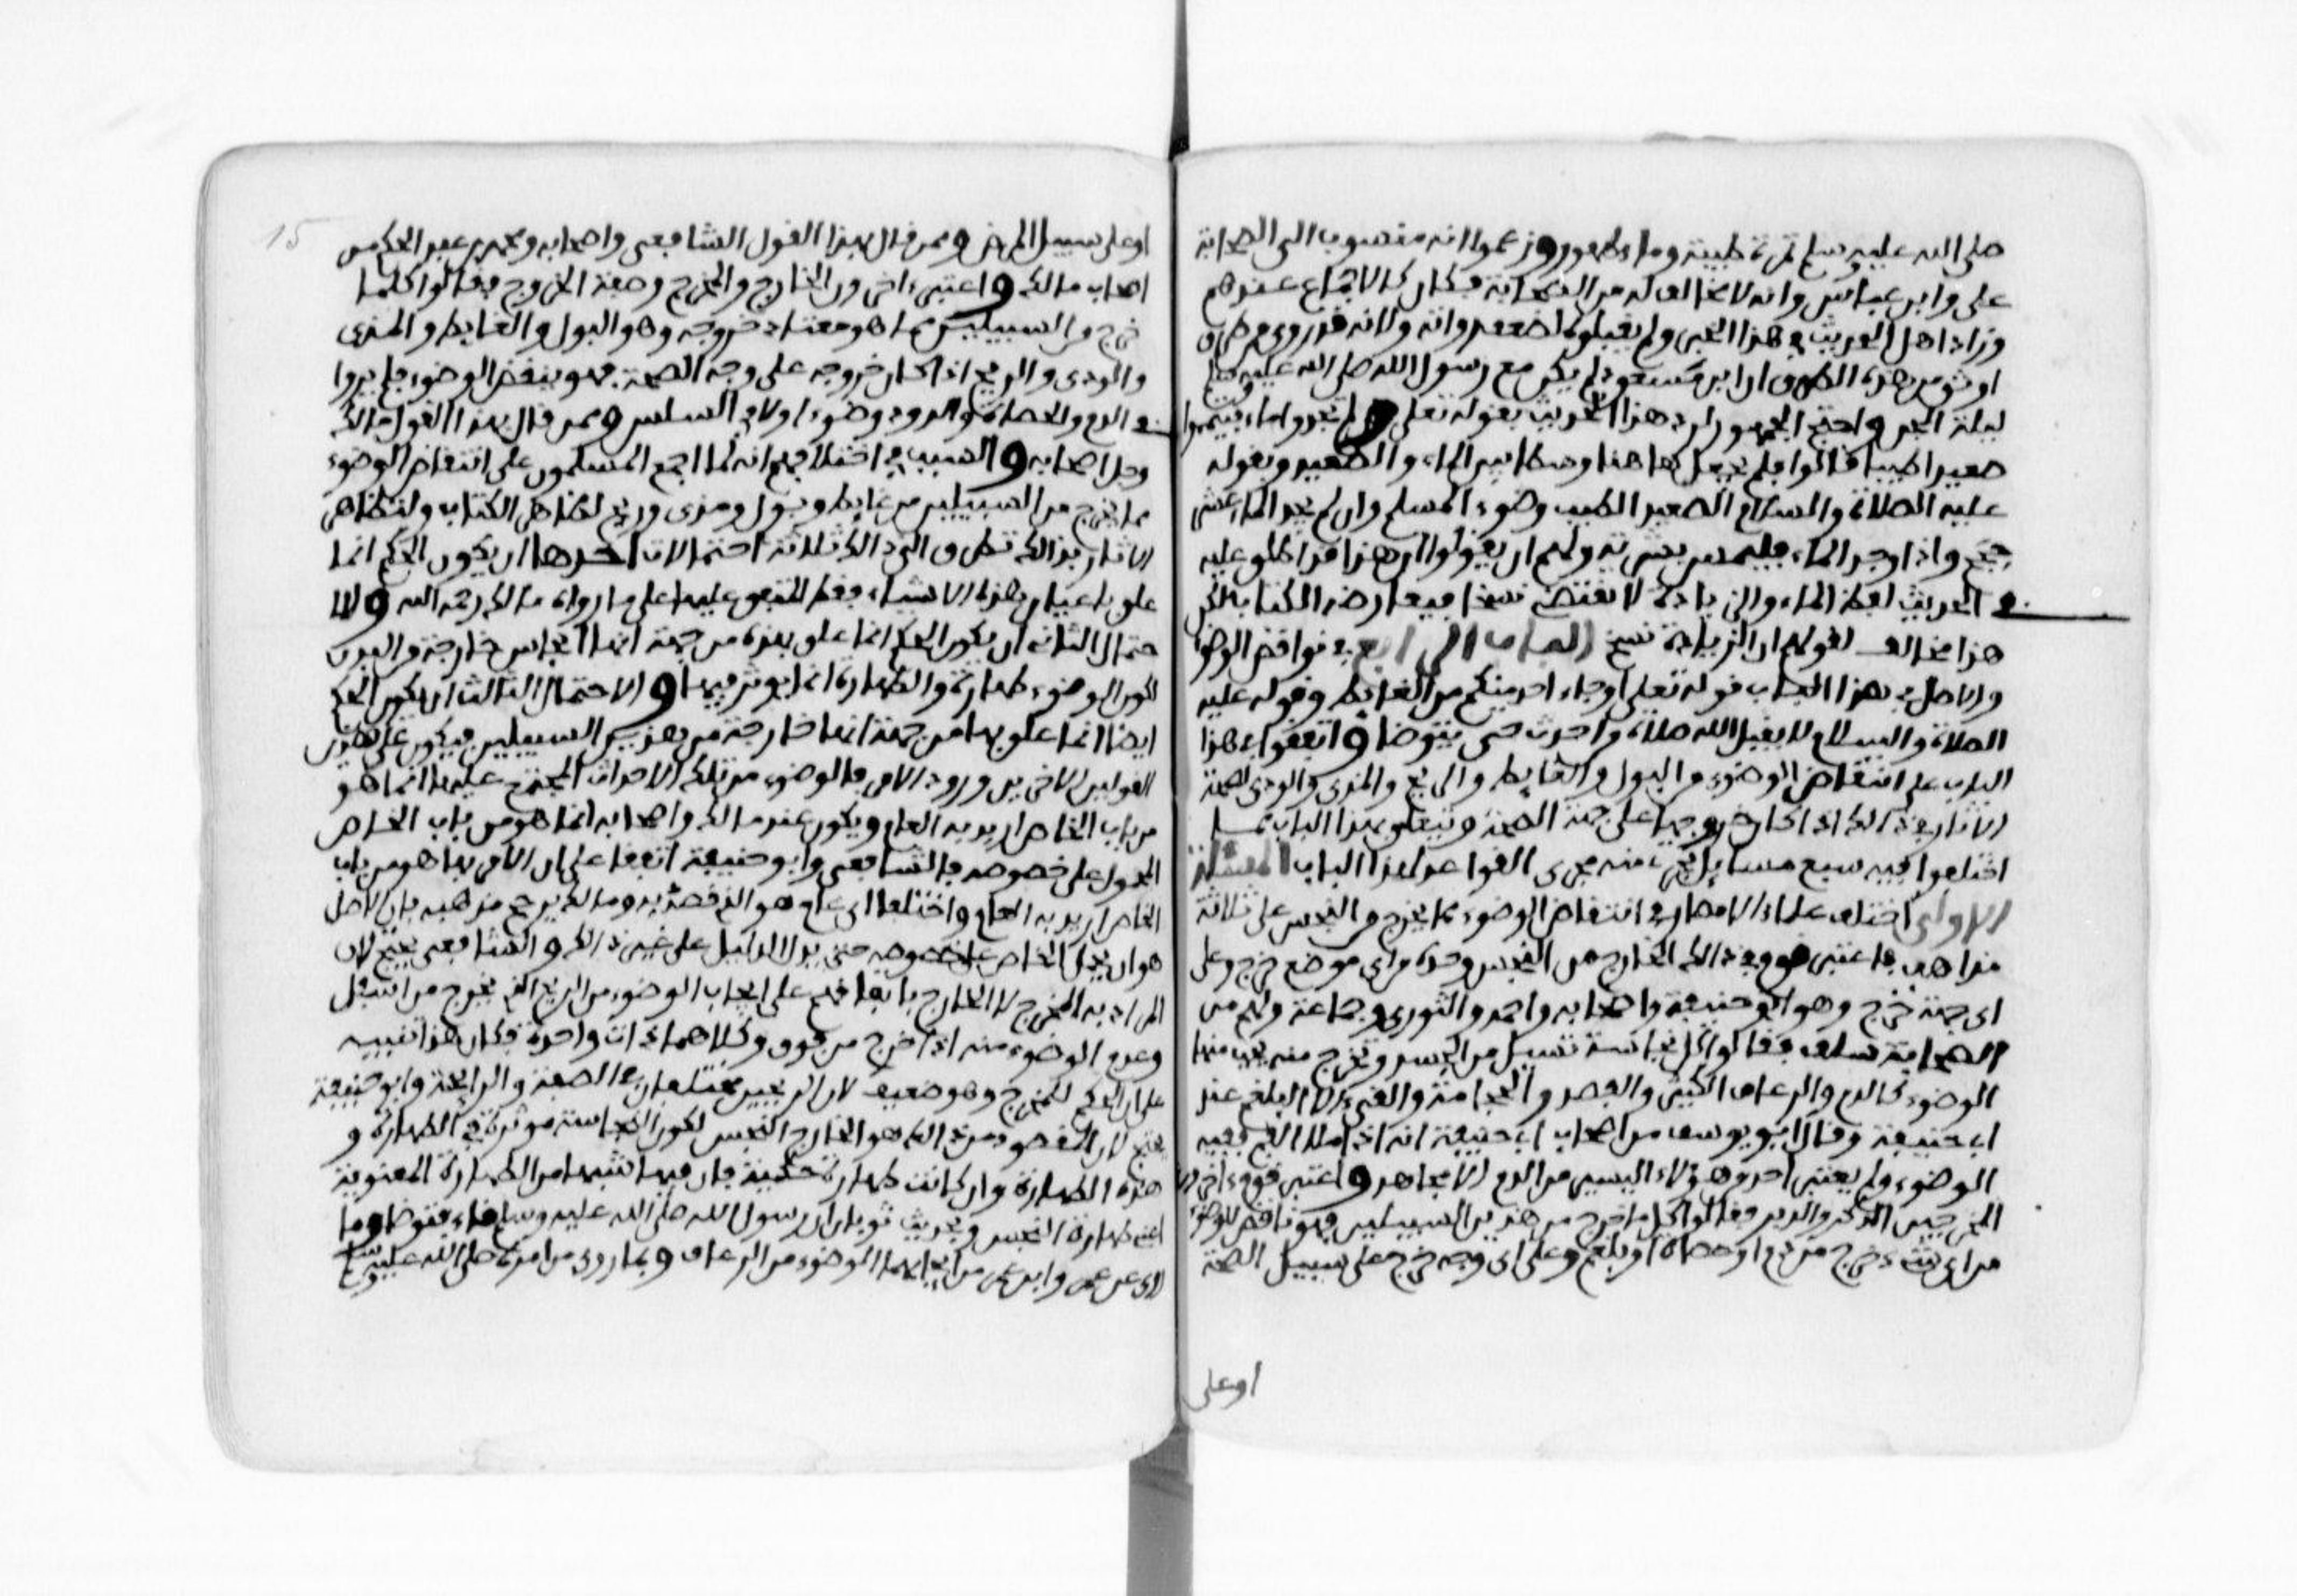 صلى الله عليه وسلم تمرة طيبة وماء طهور وزعموا انه منسوب الى الصحابة
على وابن عباس وانه لا مخالف له من الصحابة فكان كالاجماع عندهم
ورد اهل الحديث هذا الخبر ولم يقبلوه لضعف رواته ولانه قد روي من طرق
اوثق من هذه الطرق ان ابن مسعود لم يكن مع رسول الله صلى الله عليه وسلم
ليلة الجن واحتج الجمهور لرد هذا الحديث بقوله تعلى ولم تجدوا ماء فتيمموا
صعيدا طيبا قالوا فلم يجعل هاهنا وسطا بين الماء والصعيد وبقوله
عليه الصلاة والسلام الصعيد الطيب وضوء المسلم وان لم يجد الماء عشر
حجج واذا وجد الماء فليمسه بشرته ولهم ان يقولوا ان هذا قد اطلق عليه
في الحديث لفظ الماء والزيادة لا تقتضي نسخا فيعارضه الكتاب لكن
هذا مخالف لقولهم ان الزيادة نسخ الباب الرابع في نواقض الوضوء
والاصل في هذا الباب قوله تعلى اوجاء احد منكم من الغايط وقوله عليه
الصلاة والسلام لا يقبل الله صلاة من احدث حتى يتوضا واتفقوا في هذا
الباب على انتقاض الوضوء من البول والغايط والريح والمذي والودي لصحة
الاثار في ذالك اذا كان خروجها على جهة الصحة ويتعلق بهذا الباب مما
اختلفوا فيه سبع مسايل تجري منه مجرى القواعد لهذا الباب المسئلة
الاولى اختلف علماء الامصار في انتقاض الوضوء مما يخرج من الجسد من النجس على ثلاثة
مذاهب فاعتبر قوم في ذالك الخارج من النجس وحده من اي موضع خرج وعلى
اي جهة خرج وهو ابو حنيفة واصحابه واحمد والثوري وجماعة ولهم من
الصحابة سلف فقالوا كل نجاسة تسيل من الجسد وتخرج منه يجب منها
الوضوء كالدم والرعاف الكثير والفصد والحجامة والقيء الا البلغم عند
ابي حنيفة وقال ابو يوسف من اصحاب ابي حنيفة انه اذا ملا الفم ففيه
الوضوء ولم يعتبر احد من هؤلاء اليسير من الدم الا مجاهد واعتبر قوم ءاخرون
المخرجين الذكر والدبر فقالوا كل ما خرج من هذين السبيلين فهو ناقض للوضوء
من اي شيء خرج من دم او حصاة او بلغم وعلى اي وجه خرج على سبيل الصحة
اوعلى
15
اوعلى سبيل المرض وممن قال بهذا القول الشافعي واصحابه ومحمد بن عبد الحكم من
اصحاب مالك واعتبر ءاخرون الخارج والمخرج وصفة الخروج فقالوا كلما
خرج من السبيلين مما هو معتاد خروجه وهو البول والغايط والمذي
والودي والريح اذا كان خروجه على وجه الصحة فهو ينقض الوضوء فلم يروا
في الدم والحصاة والدود وضوءا ولا في السلس وممن قال بهذا القول مالك
وجل اصحابه والسبب في اختلافهم انه لما اجمع المسلمون على انتقاض الوضوء
مما يخرج من السبيلين من غايط وبول ومذي وريح لظاهر الكتاب ولتظاهر
الاثار بذالك تطرق الى ذالك ثلاثة احتمالات احدها ان يكون الحكم انما
علق باعيان هذه الاشياء فقط المتفق عليها على ما رواه مالك رحمه الله والا
حتمال الثاني ان يكون الحكم انما علق بهذه من جهة انها انجاس خارجة من البدن
لكون الوضوء طهارة والطهارة انما يوثر فيها والاحتمال الثالث ان يكون الحكم
ايضا انما علق بها من جهة انها خارجة من هذين السبيلين فيكون على هذين
القولين الاخيرين ورود الامر بالوضوء من تلك الاحداث المجتمع عليها انما هو
من باب الخاص اريد به العام ويكون عند مالك واصحابه انما هو من باب الخاص
المحمول على خصوصه فالشافعي وابو حنيفة اتفقا على ان الامر بها هو من باب
الخاص اريد به العام واختلفا اي عام هو الذي قصد به ومالك يرجح مذهبه بان الاصل
هو ان يحمل الخاص على خصوصه حتى يدل الدليل على غير ذالك والشافعي يحتج لان
المراد به المخرج لا الخارج باتفاقهم على ايجاب الوضوء من الريح الذي يخرج من اسفل
وعدم الوضوء منه اذا خرج من فوق وكلاهما ذات واحدة فكان هذا تنبيه
على ان الحكم للمخرج وهو ضعيف لان الريحين مختلفان في الصفة والرايحة وابو حنيفة
يحتج لان المقصود من ذالك هو الخارج النجس لكون النجاسة موثرة في الطهارة و
هذه الطهارة وان كانت طهارة حكمية فان فيها شبها من الطهارة المعنوية
اعني طهارة النجس وبحديث ثوبان ان رسول الله صلى الله عليه وسلم قاء فتوضا وبما
روي عن عمر وابن عمر من ايجابهما الوضوء من الرعاف وبما روي من امره صلى الله عليه وسلم